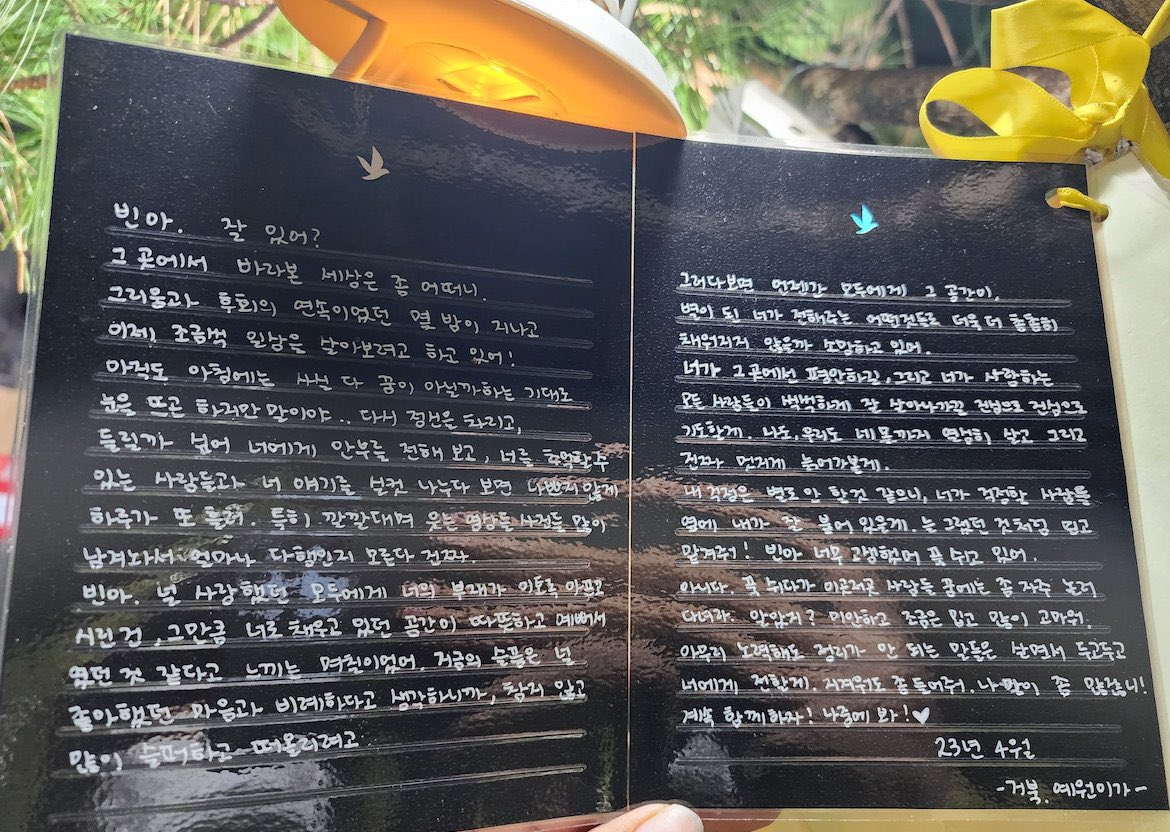 빈아. 잘 있어?
그 곳에서 바라본 세상은 좀 어떠니.
그리움과 후회의 연속이었던 몇 밤이 지나고
이제, 조금씩 일상을 살아보려고 하고 있어!
아직도 아침에는 사실 다 꿈이 아닐까하는 기대로
눈을 뜨곤 하지만 말이야.. 다시 정신을 차리고,
들릴까 싶어 너에게 안부를 전해 보고, 너를 추억할수
있는 사람들과 너 얘기를 실컷 나누다 보면 나쁘지 않게
하루가 또 흘러. 특히 깔깔대며 웃는 영상들 사진들 많이
남겨놔서 얼마나 다행인지 모른다 진짜.
빈아. 널 사랑했던 모두에게 너의 부재가 이토록 아프고
시린 건, 그만큼 너로 채우고 있던 공간이 따뜻하고 예뻐서
였던 것 같다고 느끼는 며칠이었어. 지금의 슬픔은 널
좋아했던 마음과 비례하다고 생각하니까, 참지 않고
많이 슬퍼하고 떠올리려고
그러다보면 언젠간 모두에게 그 공간이,
별이 된 너가 전해주는 어떤것들로 더욱 더 촘촘히
채워지지 않을까 소망하고 있어.
너가 그곳에선 평안하길, 그리고 너가 사랑하는
모든 사람들이 씩씩하게 잘 살아나가길 진심으로 진심으로
기도할게. 나도, 우리도 네 몫까지 열심히 살고 그리고
진짜 멋지게 늙어가볼게.
내 걱정은 별로 안 할것 같으니, 너가 걱정할 사람들
옆에 내가 잘 붙어 있을게. 늘 그랬던 것처럼 믿고
맡겨줘! 빈아 너무 고생했어 푹 쉬고 있어.
아니다. 푹 쉬다가 이곳저곳 사람들 꿈에는 좀 자주 놀러
다녀라. 알았지? 미안하고 조금은 밉고 많이 고마워.
아무리 노력해도 정리가 안 되는 말들은 살면서 두고두고
너에게 전할게. 지겨워도 좀 들어줘. 나 말이 좀 많잖니!
계속 함께하자! 나중에 봐!♥
23년 4월
-거북, 예원이가-